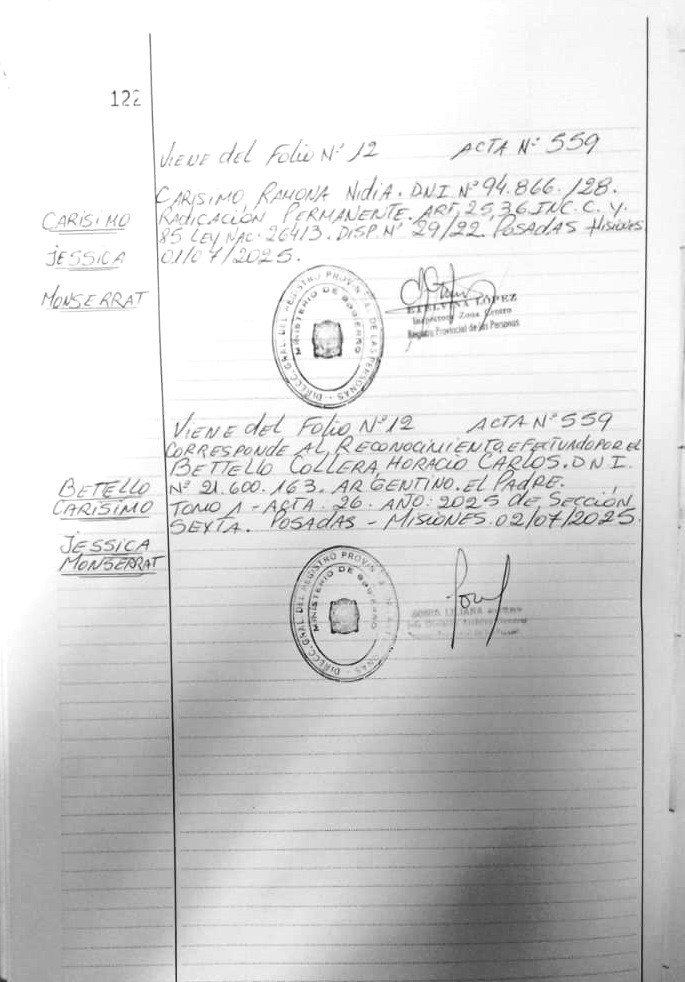 122
VIENE del Folio Nº 12 ACTA Nº 559
CARISIMO, RAMONA NIDIA. DNI. Nº 94.866.128.
CARISIMO
RADICACIÓN PERMANENTE. ART, 25, 36 INC. C. y.
85 LEY NAC. 26413. DISP. Nº 29/22. POSADAS MISIONES
JESSICA
01/07/2025.
MONSERRAT
DIRECC. GRAL DEL REGISTRO PROVINCIAL DE LAS PERSONAS
MINISTERIO DE GOBIERNO
ETELVINA LOPEZ
Inspectora Zona Centro
Registro Provincial de las Personas
VIENE del Folio Nº 12 ACTA Nº 559
CORRESPONDE AL RECONOCIMIENTO, EFECTUADO POR EL
BETTELLO COLLERA, HORACIO CARLOS. DNI.
BETELLO
Nº 21.600.163. ARGENTINO. EL PADRE.
CARISIMO
TOMO 1 - ACTA. 26. AÑO: 2025 de SECCIÓN
SEXTA. POSADAS - MISIONES. 02/07/2025.
JESSICA
MONSERRAT
DIRECC. GRAL DEL REGISTRO PROVIN
MINISTERIO DE GOBIERNO
PERSONAS
LILIANA